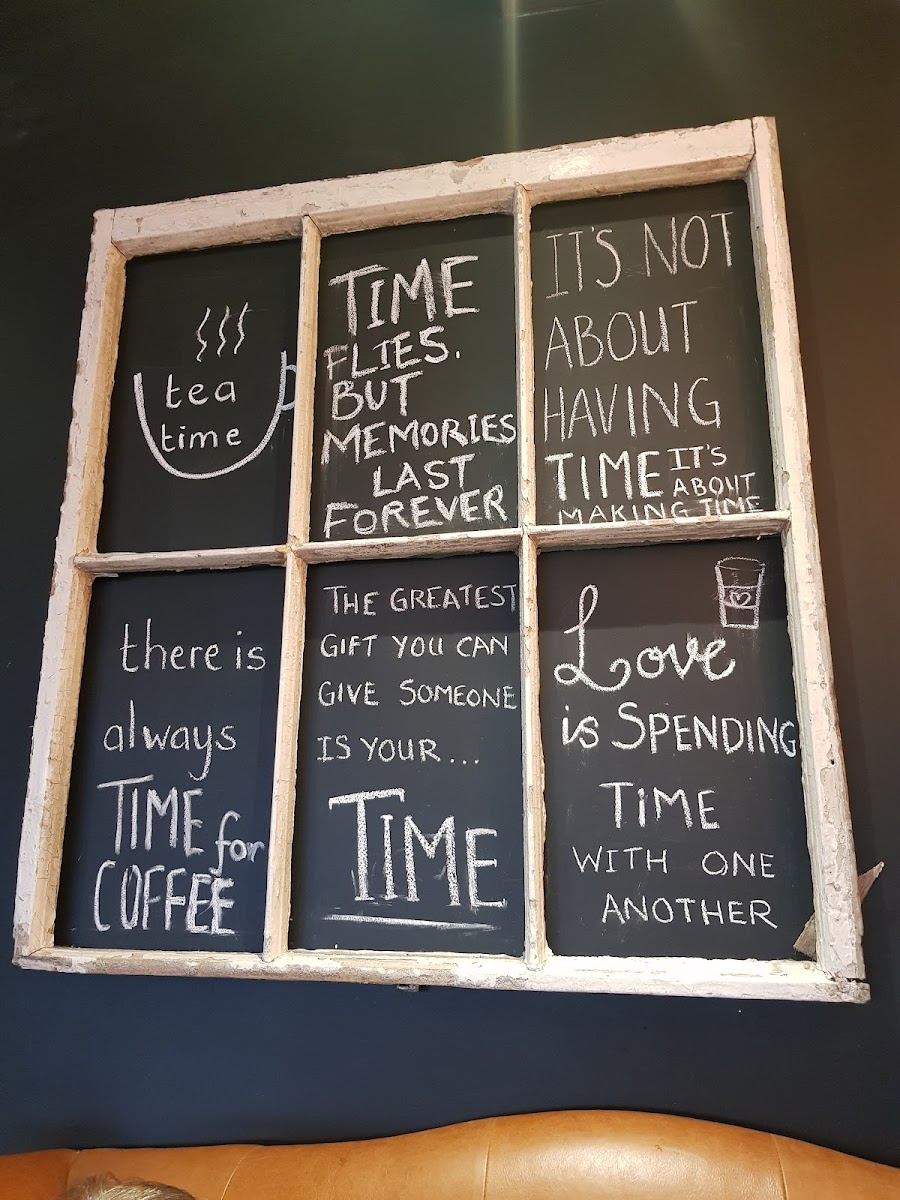 tea
time
TIME
FLIES.
BUT
MEMORIES
LAST
FOREVER
IT'S NOT
ABOUT
HAVING
TIME IT'S
ABOUT
MAKING TIME
there is
always
TIME for
COFFEE
THE GREATEST
GIFT YOU CAN
GIVE SOMEONE
IS YOUR...
TIME
Love
is SPENDING
TIME
WITH ONE
ANOTHER